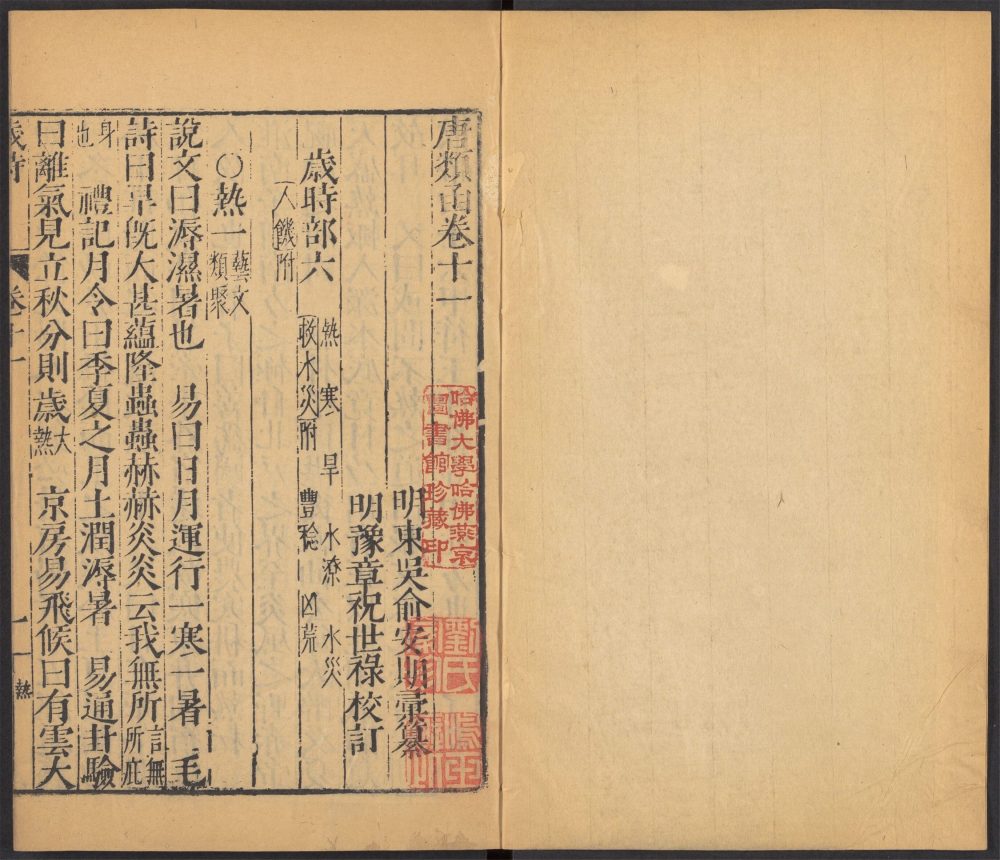 唐類函卷十一
明東吳俞安期彙纂
明豫章祝世祿校訂
歲時部六 熱 寒 旱 水潦 水災 收水災附 豐稔 凶荒
人饑附
○熱一 藝文類聚
說文曰溽濕暑也 易曰日月運行一寒一暑 毛
詩曰旱旣大甚蘊隆蟲蟲赫赫炎炎云我無所 言無所庇
身也 禮記月令曰季夏之月土潤溽暑 易通卦驗
曰離氣見立秋分則歲大熱 京房易飛候曰有雲大
歲時
卷十一
一
熱
哈佛大學哈佛燕京
圖書館珍藏印
劉氏